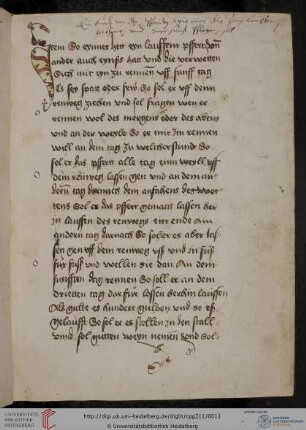 Item So eyner hett eyn lauffent pffert vnd
ander auch eyns hat vnd die verwetten
Sich mit eyn zu rennen vff funff tag
Eß sey spatt oder frw So sol er vff den
rennweg ziehen vnd sol fragen wen er
rennen wol des morgens oder des abens
vnd an der weyle So er mit im rennen
will an dem tag zu welcher stund So
sol er das pffert alle tag ein weyll vff
dem rennweg lassen gen vnd an dem an
dern tag darnach dem anfahens
sol er das pffert gemach lassen her
in lauffen des rennwegs ein ende Am
andern tag darnach So sol er es aber las
sen gen vff dem rennweg vff vnd
fur vnd wellen sie dan Am dem
funfften tag rennen So soll er an dem
dritten tag dar fur lossen herein lauffen
Als gulte es hundert gulden vnd so es
gelaufft So sol er es stallen In den stall
vnd sol gutten weyn nemen vnd Sol
UNIVERSITÄTS-
BIBLIOTHEK
HEIDELBERG
http://digi.ub.uni-heidelberg.de/diglit/cpg211/0011
© Universitätsbibliothek Heidelberg